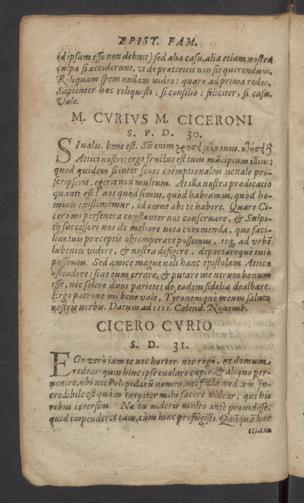 EPIST. FAM.
id ipsum esse non debuit) sed alia casu, alia etiam nostra
culpa si acciderunt, ut de præteritis non sit querendum.
Reliquam spem nullam uideo: quare ad prima redeo.
Sapienter hæc reliquisti, si consilio: feliciter, si casu.
Vale.
M. CVRIVS M. CICERONI
S. P. D. 30.
SI uales, bene est. Sũ enim
Attici nostri: ergo fructus est tuus mãcipium illius:
quod quidem si inter senes coemptionales uenale pro-
scripserit, egerit non multum. At illa nostra prædicatio
quanti est? nos quod simus, quod habeamus, quod ho-
mines existimemur, id omne abs te habere. Quare Ci-
cero mi perseuera constanter nos conseruare, & Sulpi-
tij successori nos de meliore nota commenda, quo faci-
lius tuis præceptis obtemperare possimus, teq; ad urbẽ
lubentes uidere, & nostra refigere, deportareque tuto
possimus. Sed amice magne noli hanc epistolam Attico
ostendere: sine eum errare, & putare me uirum bonum
esse, nec solere duos parietes de eadem fidelia dealbare.
Ergo patrone mi bene uale, Tyronemque meum saluta
nostris uerbis. Datum ad IIII. Calend. Nouemb.
CICERO CVRIO
S. D. 31.
EGo uerò iam te nec hortor, nec rogo, ut domum
redeas: quin hinc ipse euolare cupio, & aliquo per-
uenire, ubi nec Pelopidarũ nomen, nec facta audiam. In-
credibile est quàm turpiter mihi facere uidear, qui his
rebus intersim. Næ tu uideris multo ante prouidisse,
quid impenderet tum, cùm hinc profugisti. Quãquã hæc
etiam